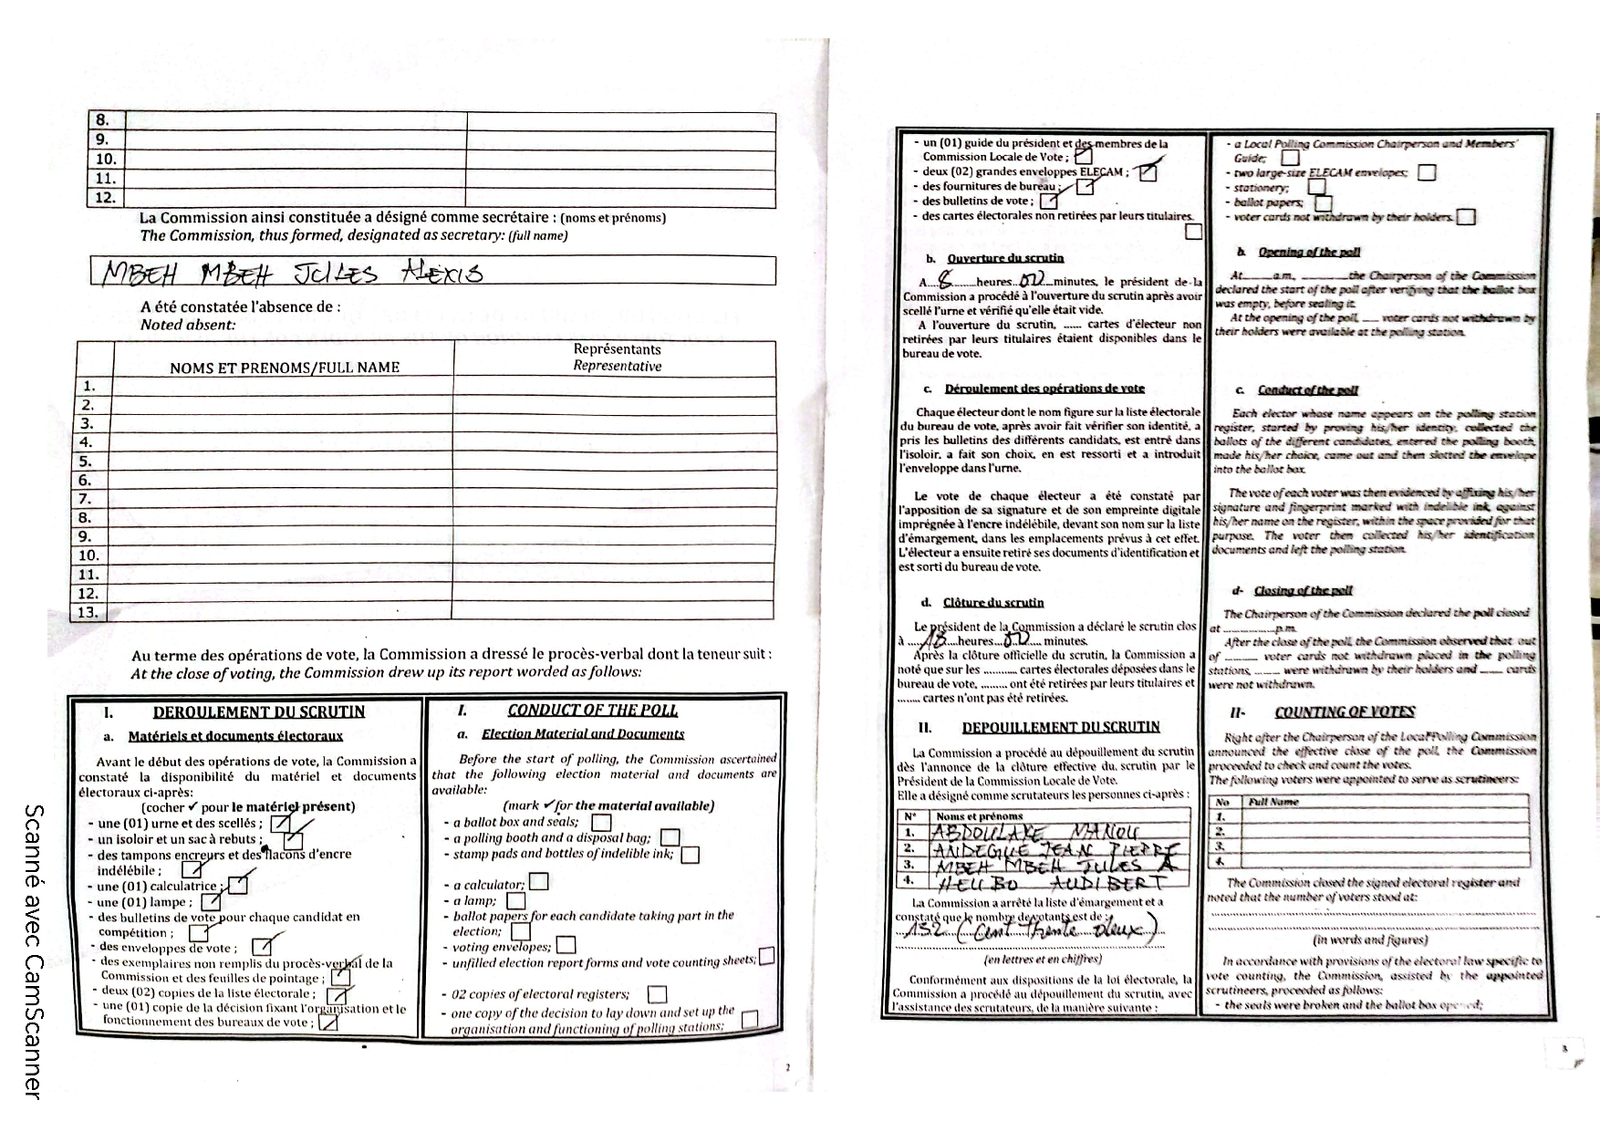 8.
9.
10.
11.
12.
La Commission ainsi constituée a désigné comme secrétaire : (noms et prénoms)
The Commission, thus formed, designated as secretary: (full name)
MBEH MBEH JULES ALEXIS
A été constatée l'absence de :
Noted absent:
NOMS ET PRENOMS/FULL NAME
Représentants
Representative
1.
2.
3.
4.
5.
6.
7.
8.
9.
10.
11.
12.
13.
Au terme des opérations de vote, la Commission a dressé le procès-verbal dont la teneur suit :
At the close of voting, the Commission drew up its report worded as follows:
I. DEROULEMENT DU SCRUTIN
a. Matériels et documents électoraux
Avant le début des opérations de vote, la Commission a
constaté la disponibilité du matériel et documents
électoraux ci-après:
(cocher ✓ pour le matériel présent)
- une (01) urne et des scellés ;
- un isoloir et un sac à rebuts ;
- des tampons encreurs et des flacons d'encre
indélébile ;
- une (01) calculatrice ;
- une (01) lampe ;
- des bulletins de vote pour chaque candidat en
compétition ;
- des enveloppes de vote ;
- des exemplaires non remplis du procès-verbal de la
Commission et des feuilles de pointage ;
- deux (02) copies de la liste électorale ;
- une (01) copie de la décision fixant l'organisation et le
fonctionnement des bureaux de vote ;
I. CONDUCT OF THE POLL
a. Election Material and Documents
Before the start of polling, the Commission ascertained
that the following election material and documents are
available:
(mark ✓ for the material available)
- a ballot box and seals;
- a polling booth and a disposal bag;
- stamp pads and bottles of indelible ink;
- a calculator;
- a lamp;
- ballot papers for each candidate taking part in the
election;
- voting envelopes;
- unfilled election report forms and vote counting sheets;
- 02 copies of electoral registers;
- one copy of the decision to lay down and set up the
organisation and functioning of polling stations;
2
- un (01) guide du président et des membres de la
Commission Locale de Vote ;
- deux (02) grandes enveloppes ELECAM ;
- des fournitures de bureau ;
- des bulletins de vote ;
- des cartes électorales non retirées par leurs titulaires.
b. Ouverture du scrutin
A 8 heures 00 minutes, le président de la
Commission a procédé à l'ouverture du scrutin après avoir
scellé l'urne et vérifié qu'elle était vide.
A l'ouverture du scrutin, ...... cartes d'électeur non
retirées par leurs titulaires étaient disponibles dans le
bureau de vote.
c. Déroulement des opérations de vote
Chaque électeur dont le nom figure sur la liste électorale
du bureau de vote, après avoir fait vérifier son identité, a
pris les bulletins des différents candidats, est entré dans
l'isoloir, a fait son choix, en est ressorti et a introduit
l'enveloppe dans l'urne.
Le vote de chaque électeur a été constaté par
l'apposition de sa signature et de son empreinte digitale
imprégnée à l'encre indélébile, devant son nom sur la liste
d'émargement, dans les emplacements prévus à cet effet.
L'électeur a ensuite retiré ses documents d'identification et
est sorti du bureau de vote.
d. Clôture du scrutin
Le président de la Commission a déclaré le scrutin clos
à 18 heures 00 minutes.
Après la clôture officielle du scrutin, la Commission a
noté que sur les .......... cartes électorales déposées dans le
bureau de vote, ........ ont été retirées par leurs titulaires et
....... cartes n'ont pas été retirées.
II. DEPOUILLEMENT DU SCRUTIN
La Commission a procédé au dépouillement du scrutin
dès l'annonce de la clôture effective du scrutin par le
Président de la Commission Locale de Vote.
Elle a désigné comme scrutateurs les personnes ci-après :
N° Noms et prénoms
1. ABDOULAYE MANOU
2. ANDEGUE JEAN PIERRE
3. MBEH MBEH JULES A
4. HELI BO AUDIBERT
La Commission a arrêté la liste d'émargement et a
constaté que le nombre de votants est de :
132 (Cent trente deux)
(en lettres et en chiffres)
Conformément aux dispositions de la loi électorale, la
Commission a procédé au dépouillement du scrutin, avec
l'assistance des scrutateurs, de la manière suivante :
- a Local Polling Commission Chairperson and Members'
Guide;
- two large-size ELECAM envelopes;
- stationery;
- ballot papers;
- voter cards not withdrawn by their holders.
b. Opening of the poll
At.......a.m, ...........the Chairperson of the Commission
declared the start of the poll after verifying that the ballot box
was empty, before sealing it.
At the opening of the poll, .... voter cards not withdrawn by
their holders were available at the polling station.
c. Conduct of the poll
Each elector whose name appears on the polling station
register, started by proving his/her identity, collected the
ballots of the different candidates, entered the polling booth,
made his/her choice, came out and then slotted the envelope
into the ballot box.
The vote of each voter was then evidenced by affixing his/her
signature and fingerprint marked with indelible ink, against
his/her name on the register, within the space provided for that
purpose. The voter then collected his/her identification
documents and left the polling station.
d- Closing of the poll
The Chairperson of the Commission declared the poll closed
at ...............p.m.
After the close of the poll, the Commission observed that out
of .......... voter cards not withdrawn placed in the polling
stations, ....... were withdrawn by their holders and ...... cards
were not withdrawn.
II- COUNTING OF VOTES
Right after the Chairperson of the Local Polling Commission
announced the effective close of the poll, the Commission
proceeded to check and count the votes.
The following voters were appointed to serve as scrutineers:
No Full Name
1.
2.
3.
4.
The Commission closed the signed electoral register and
noted that the number of voters stood at:
(in words and figures)
In accordance with provisions of the electoral law specific to
vote counting, the Commission, assisted by the appointed
scrutineers, proceeded as follows:
- the seals were broken and the ballot box opened;
3
Scanné avec CamScanner